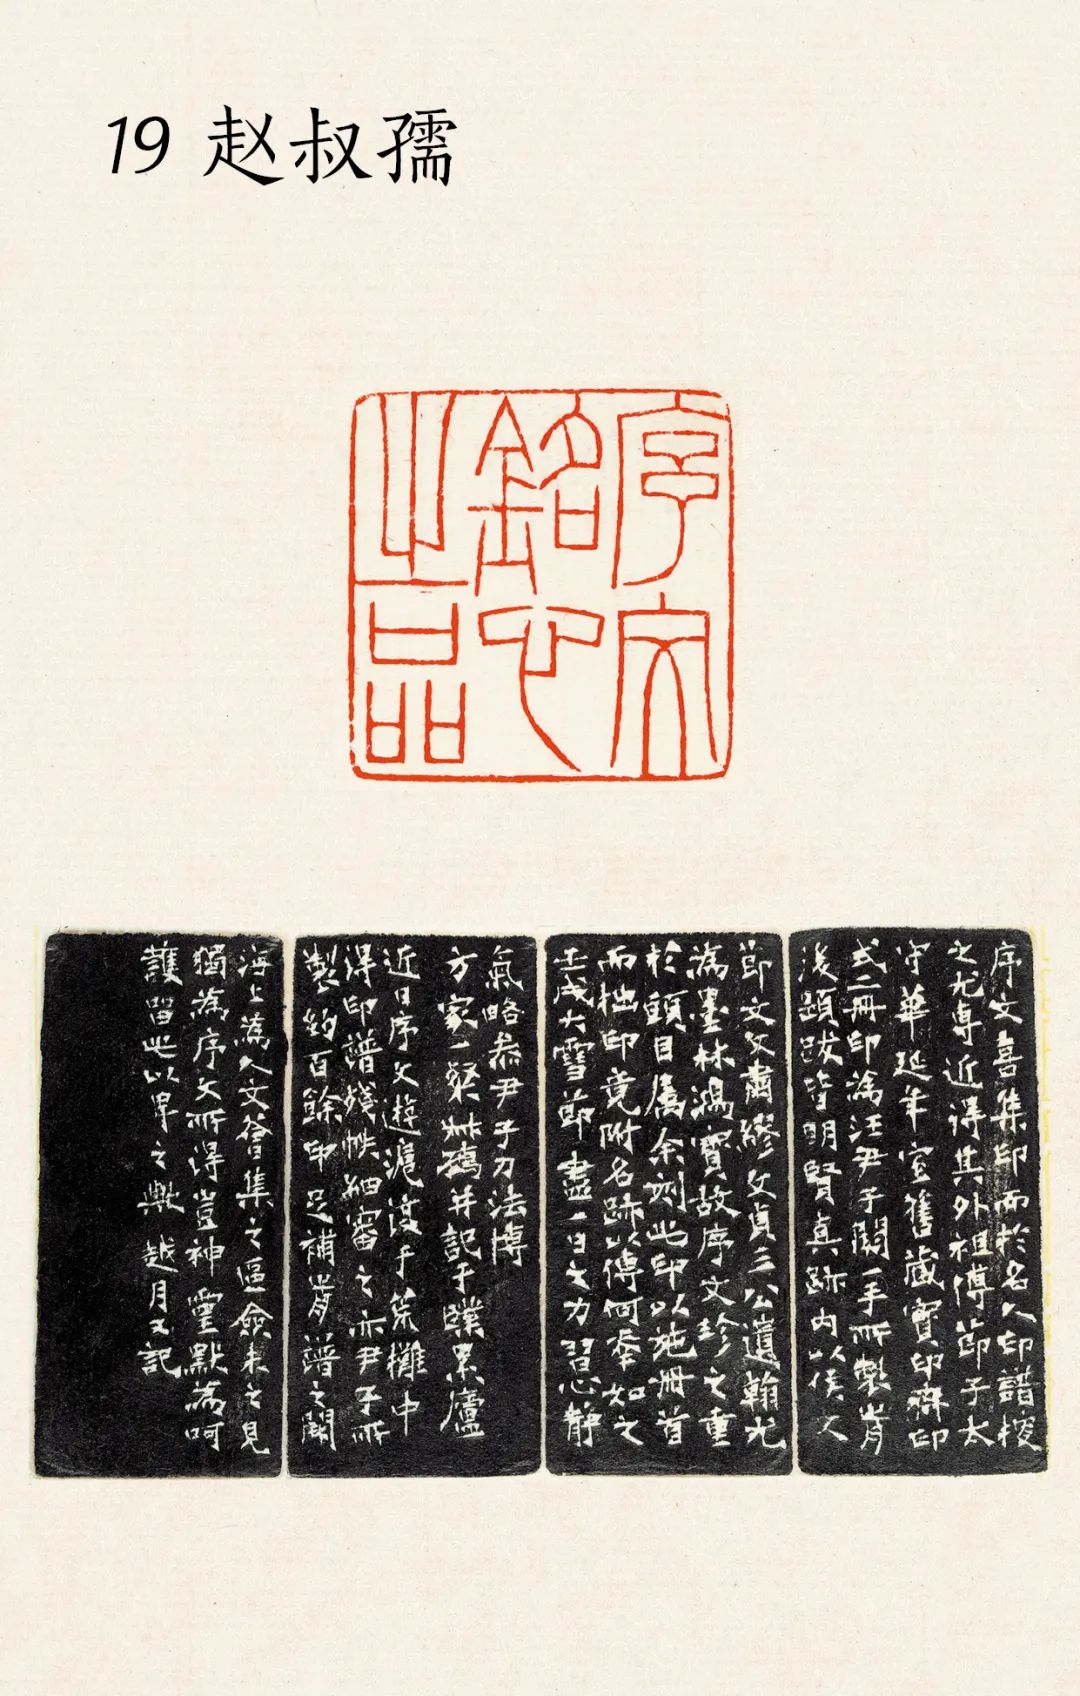 19 赵叔孺
序文
銘心
之品
序文喜集印而於名人印譜搜
之尤專近得其外祖傅節子太
守華延年室舊藏寶印齋印
式二冊印為汪尹子關一手所製前
後題跋皆明賢真跡內以侯文
節文文肅繆文貞三公遺翰尤
為墨林鴻寶故序文珍之重
於頭目屬余刻此印以施冊首
而拙印竟附名跡以傳何幸如之
壬戌大雪節盡一日之力習心靜
氣略參尹子刀法博
方家一粲叔孺并記于累廬
近日序文遊滬瀆于荒攤中
得印譜殘帙細審之亦尹子所
製約百餘印足補前譜之闕
海上為人文薈集之區僉未之見
獨為序文所得豈神靈默為呵
護留此以畀之歟越月又記